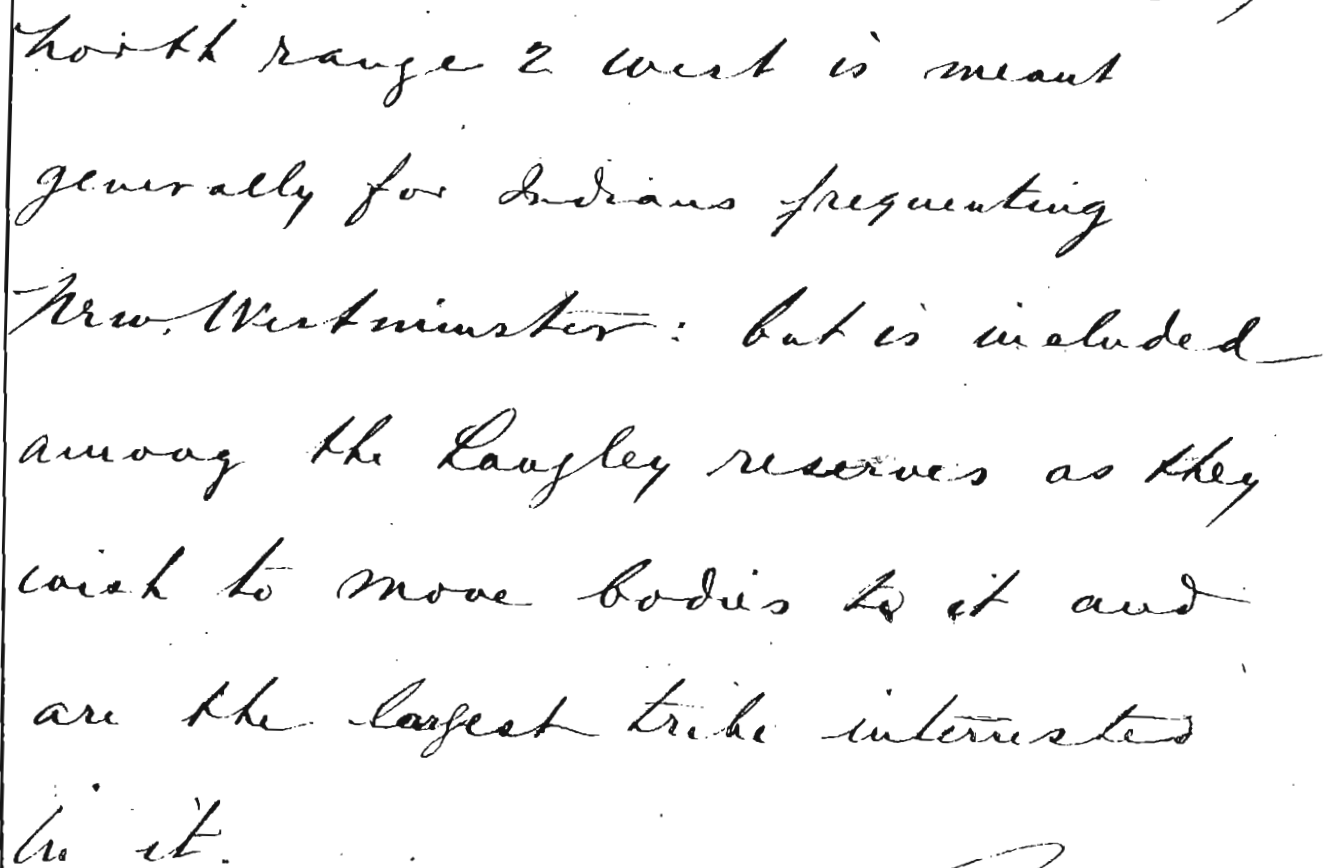 north range 2 west is meant
generally for Indians frequenting
New Westminster: but is included
among the Langley reserves as they
wish to move bodies to it and
are the largest tribe interested
in it.